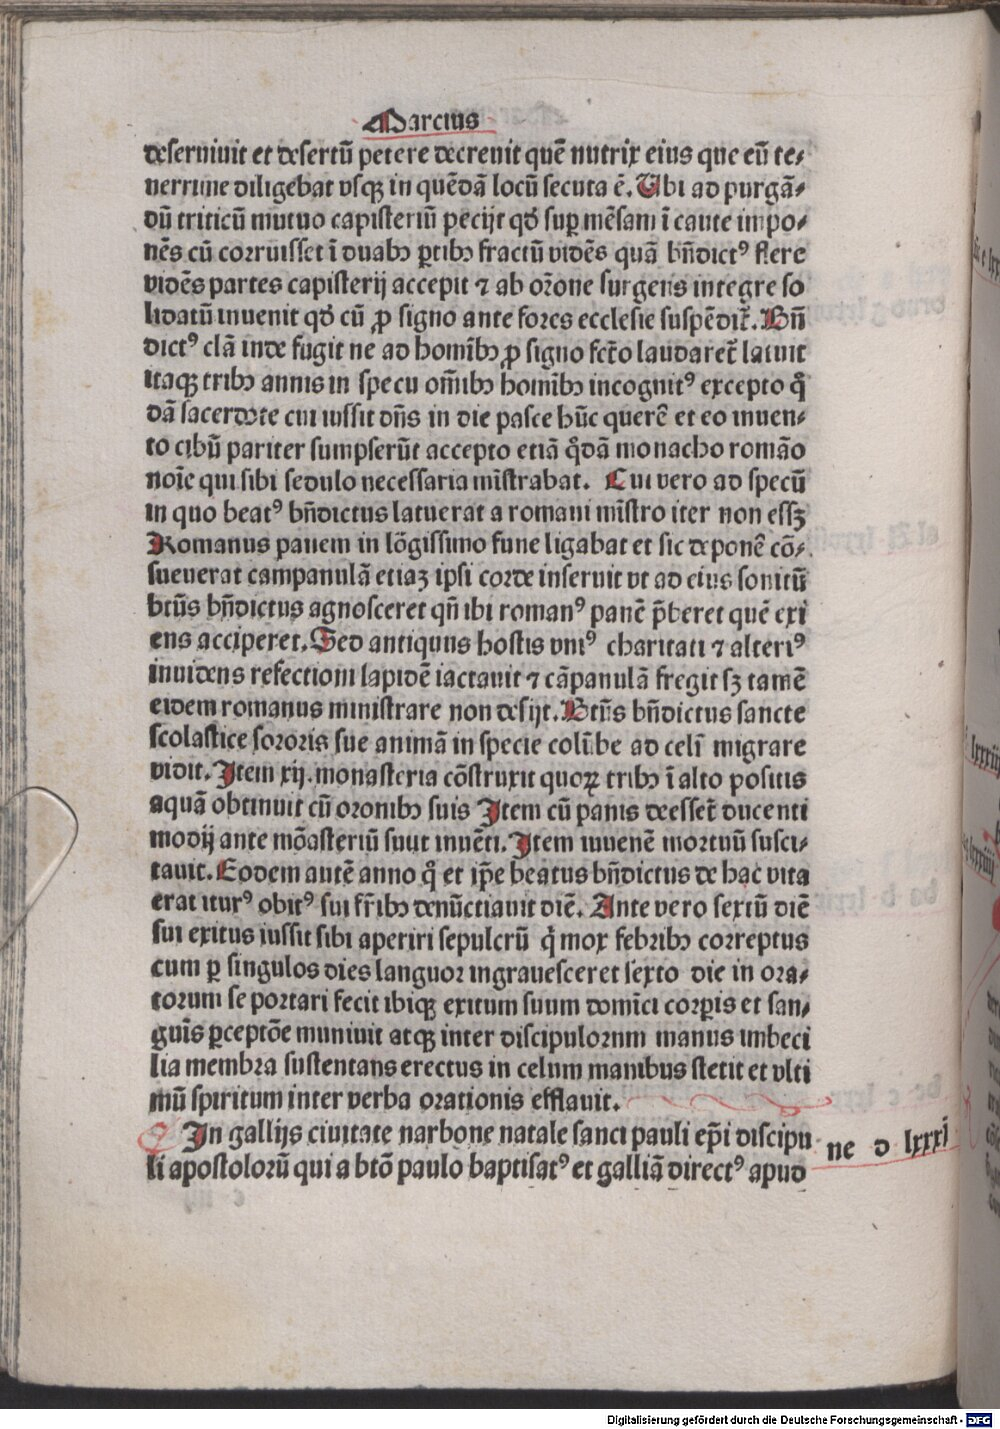 Marcius
deseruiuit et desertū petere decreuit quē nutrix eius que eū te⸗
nerrime diligebat vsqꝫ in quēdā locū secuta ē. Ubi ad purgā⸗
dū triticū mutuo capisteriū pecijt qđ suꝑ mēsam ī caute impo⸗
nēs cū corruisset ī duabꝰ ꝑtibꝰ fractū vidēs quā bn̄dictꝰ flere
vidēs partes capisterij accepit ⁊ ab or̄one surgens integre so
lidatū inuenit qđ cū ꝓ signo ante fores ecclesie suspēdit̄. Bn̄
dictꝰ clā inde fugit ne ad homībꝫ ꝓ signo fct̄o laudaret̄ latuit
itaqꝫ tribꝫ annis in specu om̄ibꝫ homībꝫ incognitꝰ excepto q̊
dā sacerdote cui iussit dn̄s in die pasce hūc querē et eo inuen⸗
to cibū pariter sumpserūt accepto etiā q̊dā monacho romāo
noīe qui sibi sedulo necessaria mīstrabat. Cui vero ad specū
in quo beatꝰ bn̄dictus latuerat a romani mīstro iter non essꝫ
Romanus panem in lōgissimo fune ligabat et sic deponē cō⸗
sueuerat campanulā etiaꝫ ipsi corde inseruit vt ad eius sonitū
btūs bn̄dictus agnosceret qn̄ ibi romanꝰ panē p̄beret quē exi
ens acciperet. Sed antiquus hostis vniꝰ charitati ⁊ alteriꝰ
inuidens refectioni lapidē iactauit ⁊ cāpanulā fregit sꝫ tamē
eidem romanus ministrare non desijt. Btūs bn̄dictus sancte
scolastice sororis sue animā in specie colūbe ad celī migrare
vidit. Item xij. monasteria cōstruxit quoꝝ tribꝫ ī alto positis
aquā obtinuit cū oronibꝫ suis Item cū panis deesset̄ ducenti
modij ante mōasteriū suut inuēti. Item iuuenē mortuū susci⸗
tauit. Eodem autē anno q̊ et ip̄e beatus bn̄dictus de hac vita
erat iturꝰ obitꝰ sui fr̄ibꝫ denūctiauit diē. Ante vero sextū diē
sui exitus iussit sibi aperiri sepulcrū q̊ mox febribꝫ correptus
cum ꝑ singulos dies languor ingrauesceret sexto die in ora⸗
torum se portari fecit ibiqꝫ exitum suum domīci corꝑis et san⸗
guīs ꝑceptōe muniuit atqꝫ inter discipulorum manus imbeci
lia membra sustentans erectus in celum manibus stetit et vlti
mū spiritum inter verba orationis efflauit.
In gallijs ciuitate narbone natale sancti pauli ep̄i discipu ne d lxxxi
li apostolorū qui a btō paulo baptisatꝰ et galliā directꝰ apud
Digitalisierung gefördert durch die Deutsche Forschungsgemeinschaft - DFG